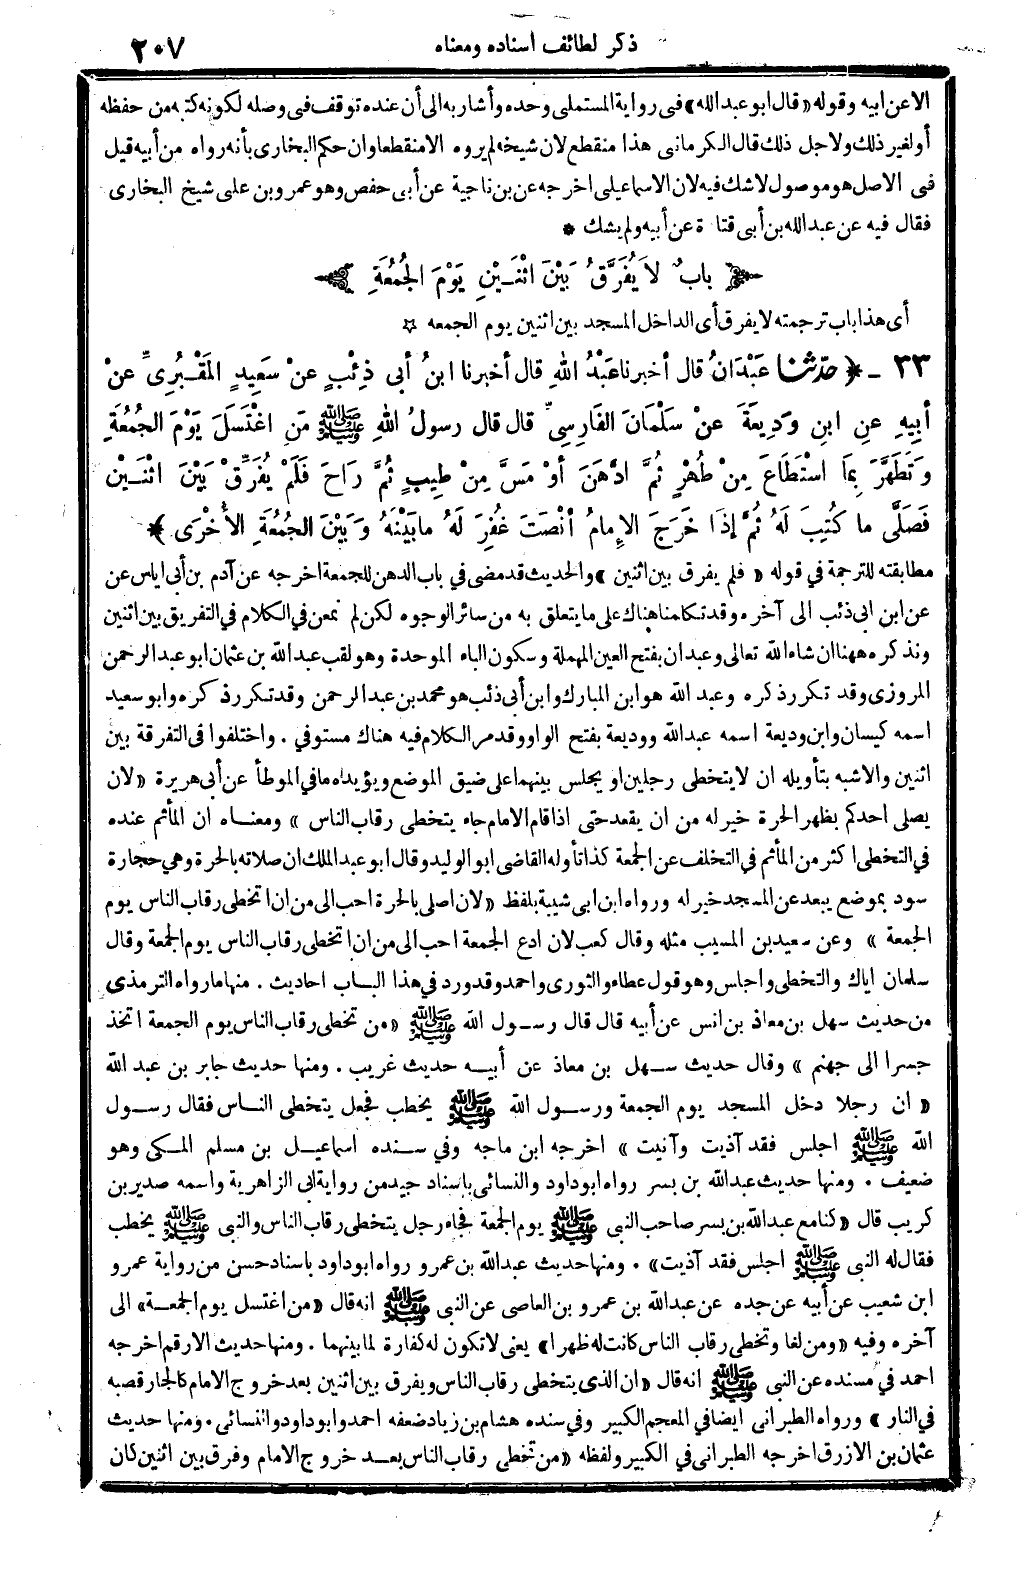 ذكر لطائف اسناده ومعناه
٢٠٧
الا عن ابيه وقوله «قال ابو عبد الله» في رواية المستملى وحده وأشار به الى أن عنده توقف في وصله لكونه كتبه من حفظه
أو لغير ذلك ولاجل ذلك قال الكرمانى هذا منقطع لان شيخه لم يروه الا منقطعا وان حكم البخارى بأنه رواه من أبيه قيل
في الاصل هو موصول لا شك فيه لان الاسماعيلى اخرجه عن بن ناجية عن أبى حفص وهو عمرو بن على شيخ البخارى
فقال فيه عن عبد الله بن أبى قتادة عن أبيه ولم يشك *
باب لاَ يُفَرَّقُ بَيْنَ اثْنَـيْنِ يَوْمَ الجُمُعَةِ
أى هذا باب ترجمته لا يفرق أى الداخل المسجد بين اثنين يوم الجمعه ☆
٣٣ - ﴿ حدّثنا عَبْدَانُ قال أخبرنا عَبْدُ اللهِ قال أخبرنا ابنُ أبى ذِئْبٍ عنْ سَعِيدٍ المَقْـبُرِىِّ عنْ
أبِيهِ عنِ ابنِ وَدِيعَةَ عنْ سَلْمَانَ الفَارِسِىِّ قال قال رسولُ اللهِ ﷺ مَنِ اغْتَسَلَ يَوْمَ الجُمُعَةِ
وَتَطَهَّرَ بِمَا اسْتَطَاعَ مِنْ طُهْرٍ ثُمَّ ادَّهَنَ أوْ مَسَّ مِنْ طِيبٍ ثُمَّ رَاحَ فَلَمْ يُفَرِّقْ بَيْنَ اثْنَـيْنِ
فَصَلَّى ما كُتِبَ لَهُ ثُمَّ إذَا خَرَجَ الإِمامُ أنْصَتَ غُفِرَ لَهُ ما بَيْنَهُ وَبَيْنَ الجُمُعَةِ الأُخْرَى ﴾
مطابقته للترجمة في قوله «فلم يفرق بين اثنين» والحديث قد مضى في باب الدهن للجمعة اخرجه عن آدم بن أبى اياس عن
عن ابن ابى ذئب الى آخره وقد تكلمنا هناك على ما يتعلق به من سائر الوجوه لكن لم نمعن في الكلام في التفريق بين اثنين
ونذكره ههنا ان شاء الله تعالى وعبدان بفتح العين المهملة وسكون الباء الموحدة وهو لقب عبد الله بن عثمان ابو عبد الرحمن
المروزى وقد تكرر ذكره وعبد الله هو ابن المبارك وابن أبى ذئب هو محمد بن عبد الرحمن وقد تكرر ذكره وابو سعيد
اسمه كيسان وابن وديعة اسمه عبد الله ووديعة بفتح الواو وقد مر الكلام فيه هناك مستوفي . واختلفوا في التفرقة بين
اثنين والاشبه بتأويله ان لا يتخطى رجلين او يجلس بينهما على ضيق الموضع ويؤيده ما في الموطأ عن أبى هريرة «لان
يصلى احدكم بظهر الحرة خير له من ان يقعد حتى اذا قام الامام جاء يتخطى رقاب الناس» ومعنـاه ان المأثم عنده
في التخطى اكثر من المأثم في التخلف عن الجمعة كذا تأوله القاضى ابو الوليد وقال ابو عبد الملك ان صلاته بالحرة وهي حجارة
سود بموضع يبعد عن المسجد خير له ورواه ابن ابى شيبة بلفظ «لان اصلى بالحرة احب الى من ان اتخطى رقاب الناس يوم
الجمعة» وعن سعيد بن المسيب مثله وقال كعب لان ادع الجمعة احب الى من ان اتخطى رقاب الناس يوم الجمعة وقال
سلمان اياك والتخطى واجلس وهو قول عطاء والثورى واحمد وقد ورد في هذا البـاب احاديث . منها ما رواه الترمذى
من حديث سهل بن معاذ بن انس عن أبيه قال قال رسـول الله ﷺ «من تخطى رقاب الناس يوم الجمعة اتخذ
جسرا الى جهنم» وقال حديث سـهل بن معاذ عن أبيـه حديث غريب . ومنها حديث جابر بن عبد الله
«ان رجلا دخل المسجد يوم الجمعة ورسـول الله ﷺ يخطب فجعل يتخطى النـاس فقال رسـول
الله ﷺ اجلس فقد آذيت وآنيت» اخرجه ابن ماجه وفي سـنده اسماعيـل بن مسلم المـكى وهو
ضعيف . ومنها حديث عبد الله بن بسر رواه ابو داود والنسائى باسناد جيد من رواية ابى الزاهرية واسمه صدير بن
كريب قال «كنا مع عبد الله بن بسر صاحب النبى ﷺ يوم الجمعة فجاء رجل يتخطى رقاب الناس والنبى ﷺ يخطب
فقال له النبى ﷺ اجلس فقد آذيت» . ومنها حديث عبد الله بن عمرو رواه ابو داود باسناد حسن من رواية عمرو
ابن شعيب عن أبيه عن جده عن عبد الله بن عمرو بن العاصى عن النبى ﷺ انه قال «من اغتسل يوم الجمعـة» الى
آخره وفيه «ومن لغا وتخطى رقاب الناس كانت له ظهرا» يعنى لا تكون له كفارة لما بينهما . ومنها حديث الارقم اخرجه
احمد في مسنده عن النبى ﷺ انه قال «ان الذى يتخطى رقاب الناس ويفرق بين اثنين بعد خروج الامام كالجار قصبه
في النار» ورواه الطبرانى ايضا في المعجم الكبير وفي سنده هشام بن زياد ضعفه احمد وابو داود والنسائى . ومنها حديث
عثمان بن الازرق اخرجه الطبرانى في الكبير ولفظه «من تخطى رقاب الناس بعـد خروج الامام وفرق بين اثنين كان